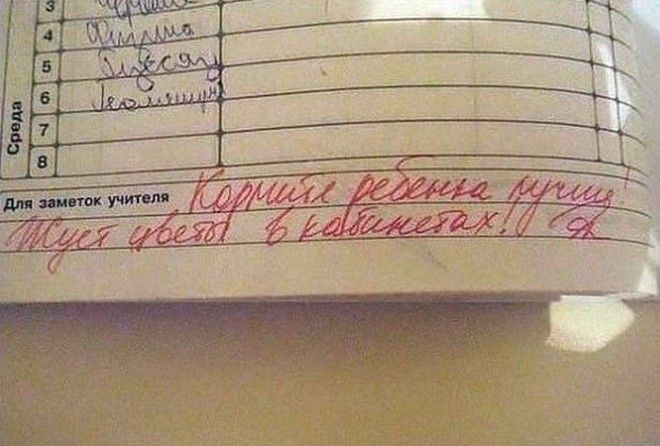 3
4 Физика
5
6 Геометрия
7
8
Среда
Для заметок учителя Кормите ребенка лучше!
Жует цветы в кабинетах!